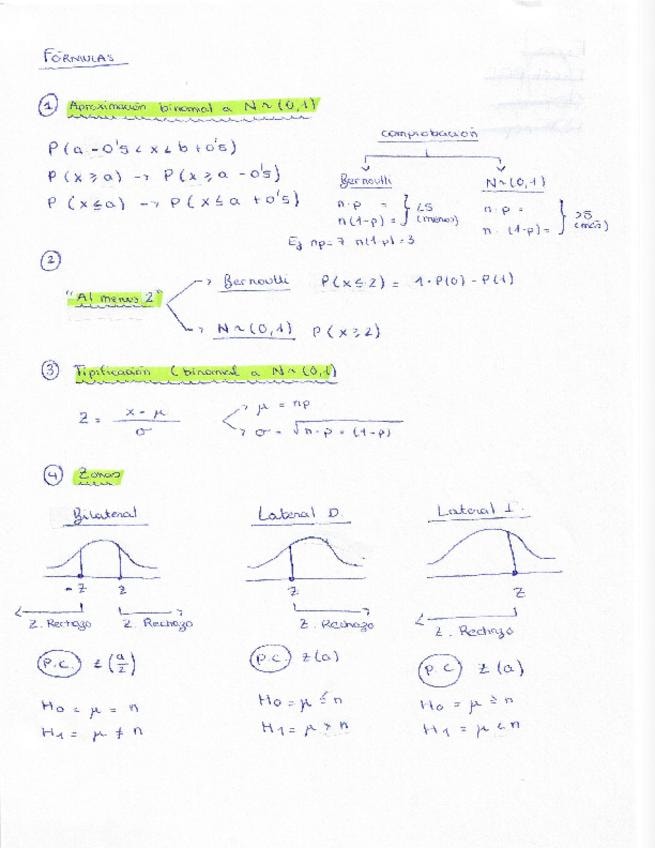 FÓRMULAS
① Aproximación binomial a N~(0,1)
P(a-0's < x < b+0's)
P(x ≥ a) → P(x ≥ a - 0's)
P(x ≤ a) → P(x ≤ a + 0's)
comprobación
Bernoulli
n·p =
n(1-p) =
<5
(menos)
Ej np = 7 n(1-p) = 3
N~(0,1)
n·p =
n·(1-p) =
>5
(más)
②
"Al menos 2"
→ Bernoulli P(x ≤ 2) = 1 - P(0) - P(1)
→ N~(0,1) P(x ≥ 2)
③ Tipificación (binomial a N~(0,1)
Z = x - μ / σ
→ μ = np
→ σ = √n·p=(1-p)
④ Zonas
Bilateral
-Z Z
Z. Rechazo Z. Rechazo
P.C. Z(a/2)
H₀ = μ = n
H₁ = μ ≠ n
Lateral D.
Z
Z. Rechazo
P.C. Z(a)
H₀ = μ ≤ n
H₁ = μ > n
Lateral I.
Z
Z. Rechazo
P.C. Z(a)
H₀ = μ ≥ n
H₁ = μ < n